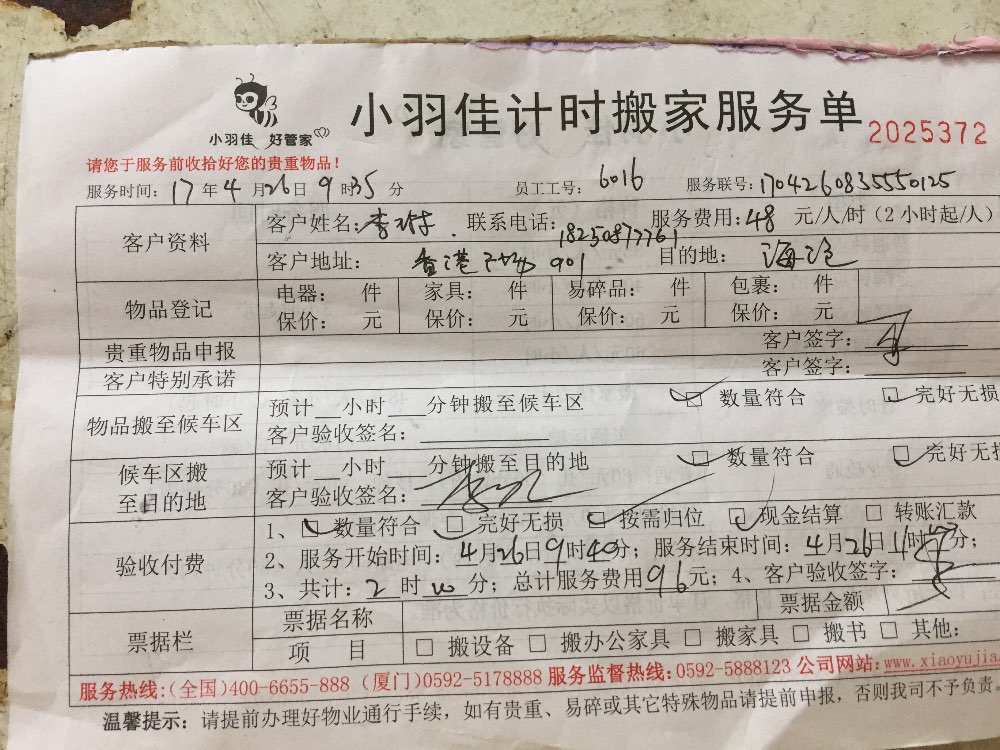 小羽佳计时搬家服务单
2025372
小羽佳 好管家
请您于服务前收拾好您的贵重物品！
服务时间：17年4月26日9时35分 员工工号：6016 服务联号：1704260835550125
客户资料
客户姓名：李 联系电话：18250877761 服务费用：48元/人/时（2小时起/人）
客户地址：香港 901 目的地：海沧
物品登记
电器： 件 家具： 件 易碎品： 件 包裹： 件
保价： 元 保价： 元 保价： 元 保价： 元
贵重物品申报 客户签字：
客户特别承诺 客户签字：
物品搬至候车区
预计__小时___分钟搬至候车区 数量符合 完好无损
客户验收签名：
候车区搬至目的地
预计__小时___分钟搬至目的地 数量符合 完好无
客户验收签名：
验收付费
1、数量符合 完好无损 按需归位 现金结算 转账汇款
2、服务开始时间：4月26日9时40分；服务结束时间：4月26日11时分；
3、共计：2时分；总计服务费用96元；4、客户验收签字：
票据栏
票据名称 票据金额
项 目 搬设备 搬办公家具 搬家具 搬书 其他：
服务热线：(全国)400-6655-888 (厦门)0592-5178888 服务监督热线：0592-5888123 公司网站：www.xiaoyujia
温馨提示：请提前办理好物业通行手续，如有贵重、易碎或其它特殊物品请提前申报，否则我司不予负责